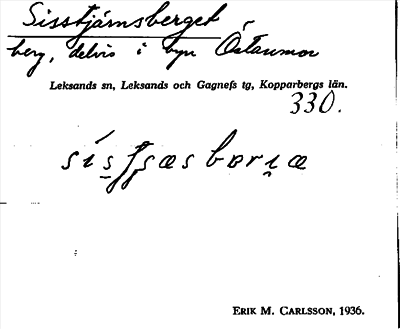 Sisstjärnsberget
berg, delvis i byn Östanmor
Leksands sn, Leksands och Gagnefs tg, Kopparbergs län.
330.
ERIK M. CARLSSON, 1936.